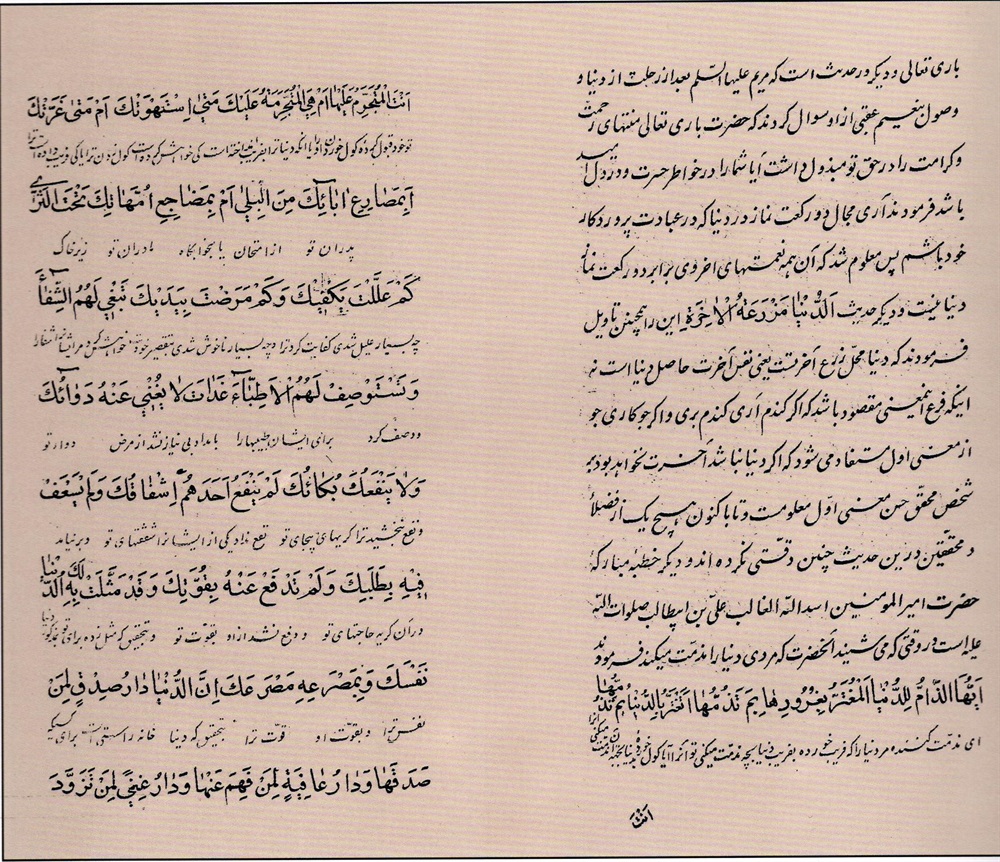 باری تعالی و دیگر در حدیث است که مریم علیها السلم بعد از رحلت از دنیا و
وصول بنعیم عقبی از او سوال کردند که حضرت باری تعالی منتهای رحمت
و کرامت را در حق تو مبذول داشت آیا شما را در خواطر حسرت و در دل امید
باشد فرمودند آری مجال دو رکعت نماز در دنیا که در عبادت پروردکار
خود باشم پس معلوم شد که آن همه نعمتهای اخروی برابر دو رکعت نماز
دنیا نیست و دیگر حدیث اَلدُّنْیا مَزْرَعَةُ الْاٰخِرَةِ این را همچنین تاویل
فرمودند که دنیا محل زرع آخرتست یعنی نفس آخرت حاصل دنیا است نه
اینکه فرع انمعنی مقصود باشد که اکر کندم آری کندم بری و اکر جو کاری جو
از معنی اول مستفاد می شود که اکر دنیا نباشد آخرت نخواهد بود بر
شخص محقق حسن معنی اوّل معلومست و تا با کنون هیچ یک از فضلاء
و محققین درین حدیث چنین دقتی نکرده اند و دیگر خطبهٔ مبارکهٔ
حضرت امیر المومنین اسد الله الغالب علی بن ابیطالب صلوات الله
علیه است در وقتی که می شنید آنحضرت که مردی دنیا را مذمت میکند فرمودند
اَیُّهَا الذّامُّ لِلدُّنْیَا الْمُغْتَرُّ بِغُرُورِهٰا بِمَ تَذُمُّهٰا اَتَغْتَرُّ بِالدُّنْیٰا ثُمَّ تَذُمُّهٰا
ای مذمت کننده مر دنیا را که فریب خورده بفریب دنیا بچه مذمت میکنی تو آنرا آیا کول خورده بدنیا
اَنْتَ
اَنْتَ الْمُتَجَرِّمُ عَلَیْهٰا اَمْ هِیَ الْمُتَجَرِّمَةُ عَلَیْكَ مَتَی اسْتَهْوَتْكَ اَمْ مَتیٰ غَرَّتْكَ
تو خود قبول کرده کول خوردن او یا انکه دنیا ترا بفریب انداخته است کی خواهش کرده است کول زدن ترا یا کی فریب داده است ترا
اَبِمَصٰارِعِ اٰبٰائِكَ مِنَ الْبِلیٰ اَمْ بِمَضٰاجِعِ اُمَّهٰاتِكَ تَحْتَ الثَّرٰی
پدران تو از امتحان یا بخوابگاه مادران تو زیر خاک
كَمْ عَلَّلْتَ بِكَفَّیْكَ وَكَمْ مَرَضْتَ بِیَدَیْكَ تَبْغی لَهُمُ الشِّفٰاءَ
چه بسیار علیل شدی کفایت کرد ترا و چه بسیار ناخوش شدی خواهش مر ایشانرا شفا
وَتَسْتَوْصِفُ لَهُمُ الْاَطِبّٰاءَ غَدٰاتَ لاٰ یُغْنی عَنْهُ دَوٰائُكَ
و وصف کرد برای ایشان طبیبها را بامداد بی نیاز نشد از مرض دواء تو
وَلاٰ یَنْفَعُكَ بُكٰائُكَ لَمْ یَنْفَعْ اَحَدَهُمْ اِشْفٰاقُكَ وَلَمْ یُسْعَفْ
و نفع نبخشید ترا کریهای بیجای تو نفع نداد یکی از ایشانرا شفقتهای تو و بر نیامد
فِیهِ بِطَلَبِكَ وَلَمْ تَدْفَعْ عَنْهُ بِقُوَّتِكَ وَقَدْ مَثَّلَتْ لَكَ بِهِ الدُّنْیٰا
در آن کریه حاجتهای تو و دفع نشد از او بقوت تو و بتحقیق که مثل زده برای تو دنیا
نَفْسَكَ وَبِمَصْرَعِهِ مَصْرَعَكَ اِنَّ الدُّنْیٰا دٰارُ صِدْقٍ لِمَنْ
نفس ترا و بقوت او قوت ترا بتحقیق که دنیا خانه راستی است برای کسیکه
صَدَقَهٰا وَدٰارُ عٰافِیَةٍ لِمَنْ فَهِمَ عَنْهٰا وَدٰارُ غِنیً لِمَنْ تَزَوَّدَ